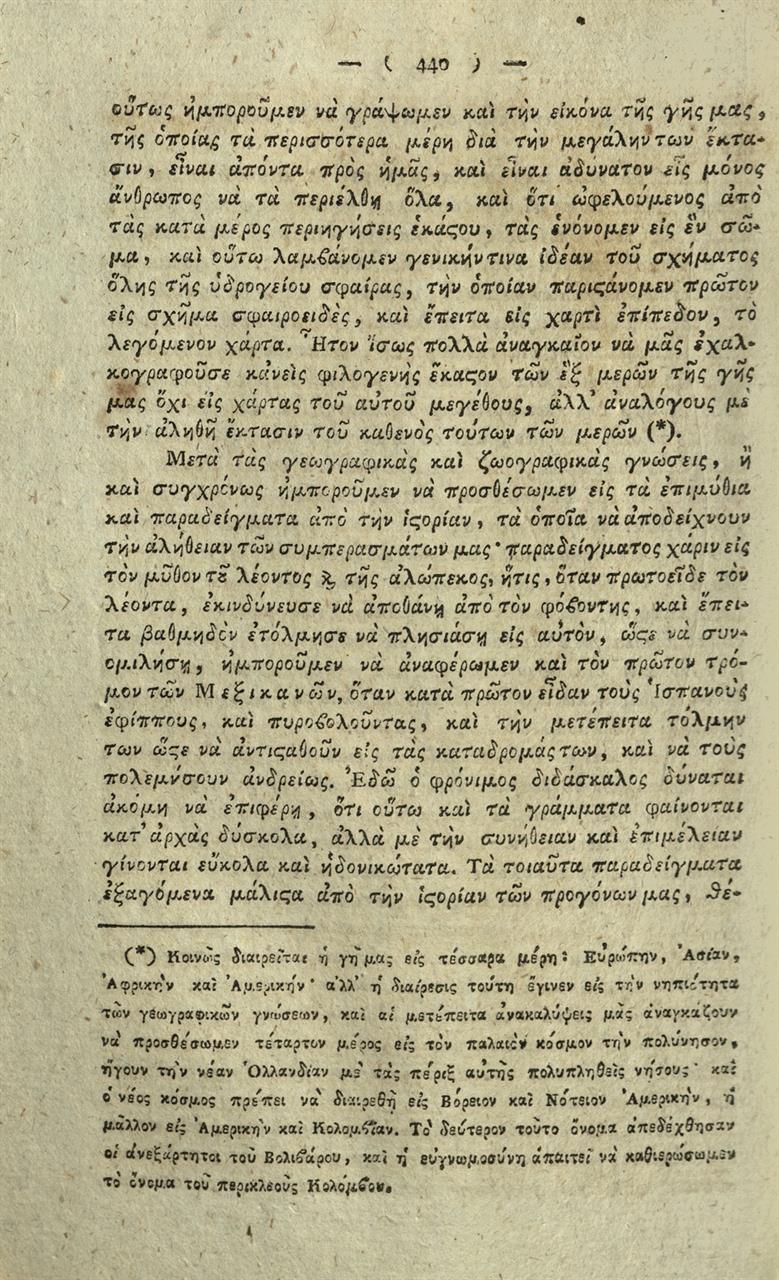 — ( 440 ) —
οὕτως ἠμποροῦμεν νὰ γράψωμεν καὶ τὴν εἰκόνα τῆς γῆς μας,
τῆς ὁποίας τὰ περισσότερα μέρη διὰ τὴν μεγάλην των ἔκτα-
σιν, εἶναι ἀπόντα πρὸς ἡμᾶς, καὶ εἶναι ἀδύνατον εἷς μόνος
ἄνθρωπος νὰ τὰ περιέλθῃ ὅλα, καὶ ὅτι ὠφελούμενος ἀπὸ
τὰς κατὰ μέρος περιηγήσεις ἑκάϛου, τὰς ἑνόνομεν εἰς ἓν σῶ-
μα, καὶ οὕτω λαμβάνομεν γενικήντινα ἰδέαν τοῦ σχήματος
ὅλης τῆς ὑδρογείου σφαίρας, τὴν ὁποίαν παριϛάνομεν πρῶτον
εἰς σχῆμα σφαιροειδὲς, καὶ ἔπειτα εἰς χαρτὶ ἐπίπεδον, τὸ
λεγόμενον χάρτα. Ἦτον ἴσως πολλὰ ἀναγκαῖον νὰ μᾶς ἐχαλ-
κογραφοῦσε κἀνεὶς φιλογενὴς ἕκαϛον τῶν ἓξ μερῶν τῆς γῆς
μας ὄχι εἰς χάρτας τοῦ αὐτοῦ μεγέθους, ἀλλ' ἀναλόγους μὲ
τὴν ἀληθῆ ἔκτασιν τοῦ καθενὸς τούτων τῶν μερῶν (*).
Μετὰ τὰς γεωγραφικὰς καὶ ζωογραφικὰς γνώσεις, ἢ
καὶ συγχρόνως ἠμποροῦμεν νὰ προσθέσωμεν εἰς τὰ ἐπιμύθια
καὶ παραδείγματα ἀπὸ τὴν ἱϛορίαν, τὰ ὁποῖα νὰ ἀποδείχνουν
τὴν ἀλήθειαν τῶν συμπερασμάτων μας· παραδείγματος χάριν εἰς
τὸν μῦθον τȣ͂ λέοντος ϗ τῆς ἀλώπεκος, ἥτις, ὅταν πρωτοεῖδε τὸν
λέοντα, ἐκινδύνευσε νὰ ἀποθάνῃ ἀπὸ τὸν φόβοντης, καὶ ἔπει-
τα βαθμηδὸν ἐτόλμησε νὰ πλησιάσῃ εἰς αὐτὸν, ὥϛε νὰ συν-
ομιλήσῃ, ἠμποροῦμεν νὰ ἀναφέρωμεν καὶ τὸν πρῶτον τρό-
μον τῶν Μεξικανῶν, ὅταν κατὰ πρῶτον εἶδαν τοὺς Ἱσπανοὺς
ἐφίππους, καὶ πυροβολοῦντας, καὶ τὴν μετέπειτα τόλμην
των ὥϛε νὰ ἀντιϛαθοῦν εἰς τὰς καταδρομάς των, καὶ νὰ τοὺς
πολεμήσουν ἀνδρείως. Ἐδῶ ὁ φρόνιμος διδάσκαλος δύναται
ἀκόμη νὰ ἐπιφέρῃ, ὅτι οὕτω καὶ τὰ γράμματα φαίνονται
κατ' ἀρχὰς δύσκολα, ἀλλὰ μὲ τὴν συνήθειαν καὶ ἐπιμέλειαν
γίνονται εὔκολα καὶ ἡδονικώτατα. Τὰ τοιαῦτα παραδείγματα
ἐξαγόμενα μάλιϛα ἀπὸ τὴν ἱϛορίαν τῶν προγόνων μας, θέ-
(*) Κοινῶς διαιρεῖται ἡ γῆ μας εἰς τέσσαρα μέρη: Εὐρώπην, Ἀσίαν,
Ἀφρικὴν καὶ Ἀμερικήν· ἀλλ' ἡ διαίρεσις τούτη ἔγινεν εἰς τὴν νηπιότητα
τῶν γεωγραφικῶν γνώσεων, καὶ αἱ μετέπειτα ἀνακαλύψεις μᾶς ἀναγκάζουν
νὰ προσθέσωμεν τέταρτον μέρος εἰς τὸν παλαιὸν κόσμον τὴν πολύνησον,
ἤγουν τὴν νέαν Ὁλλανδίαν μὲ τὰς πέριξ αὐτῆς πολυπληθεῖς νήσους· καὶ
ὁ νέος κόσμος πρέπει νὰ διαιρεθῇ εἰς Βόρειον καὶ Νότειον Ἀμερικὴν, ἢ
μᾶλλον εἰς Ἀμερικὴν καὶ Κολομβίαν. Τὸ δεύτερον τοῦτο ὄνομα ἀπεδέχθησαν
οἱ ἀνεξάρτητοι τοῦ Βολιβάρου, καὶ ἡ εὐγνωμοσύνη ἀπαιτεῖ νὰ καθιερώσωμεν
τὸ ὄνομα τοῦ περικλεοῦς Κολόμβου.